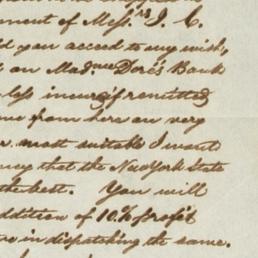 ment of Mess.rs J. C.
you accord to my wish,
on Mad.me Doré's Bank
less incur, if remitted
me from here on very
most suitable I want
ney that the New York State
the best. You will
ddition of 10.% profit
in dispatching the same.